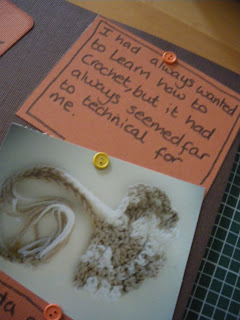 I had always wanted
to learn how to
crochet, but it had
always seemed far
to technical for
me.